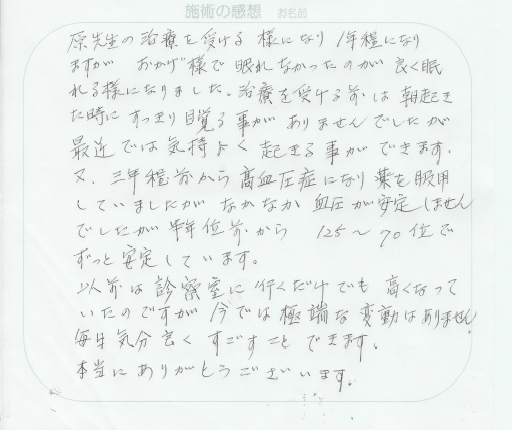 施術の感想 お名前
原先生の治療を受ける様になり1年程になり
ますが おかげ様で眠れなかったのが良く眠
れる様になりました。治療を受ける前は朝起き
た時にすっきり目覚る事がありませんでしたが
最近では気持よく起きる事ができます。
又、三年程前から高血圧症になり薬を服用
していましたがなかなか血圧が安定しません
でしたが半年位前から 125〜70位で
ずっと安定しています。
以前は診察室に行くだけでも高くなって
いたのですが今では極端な変動はありません
毎日気分良くすごすことできます。
本当にありがとうございます。